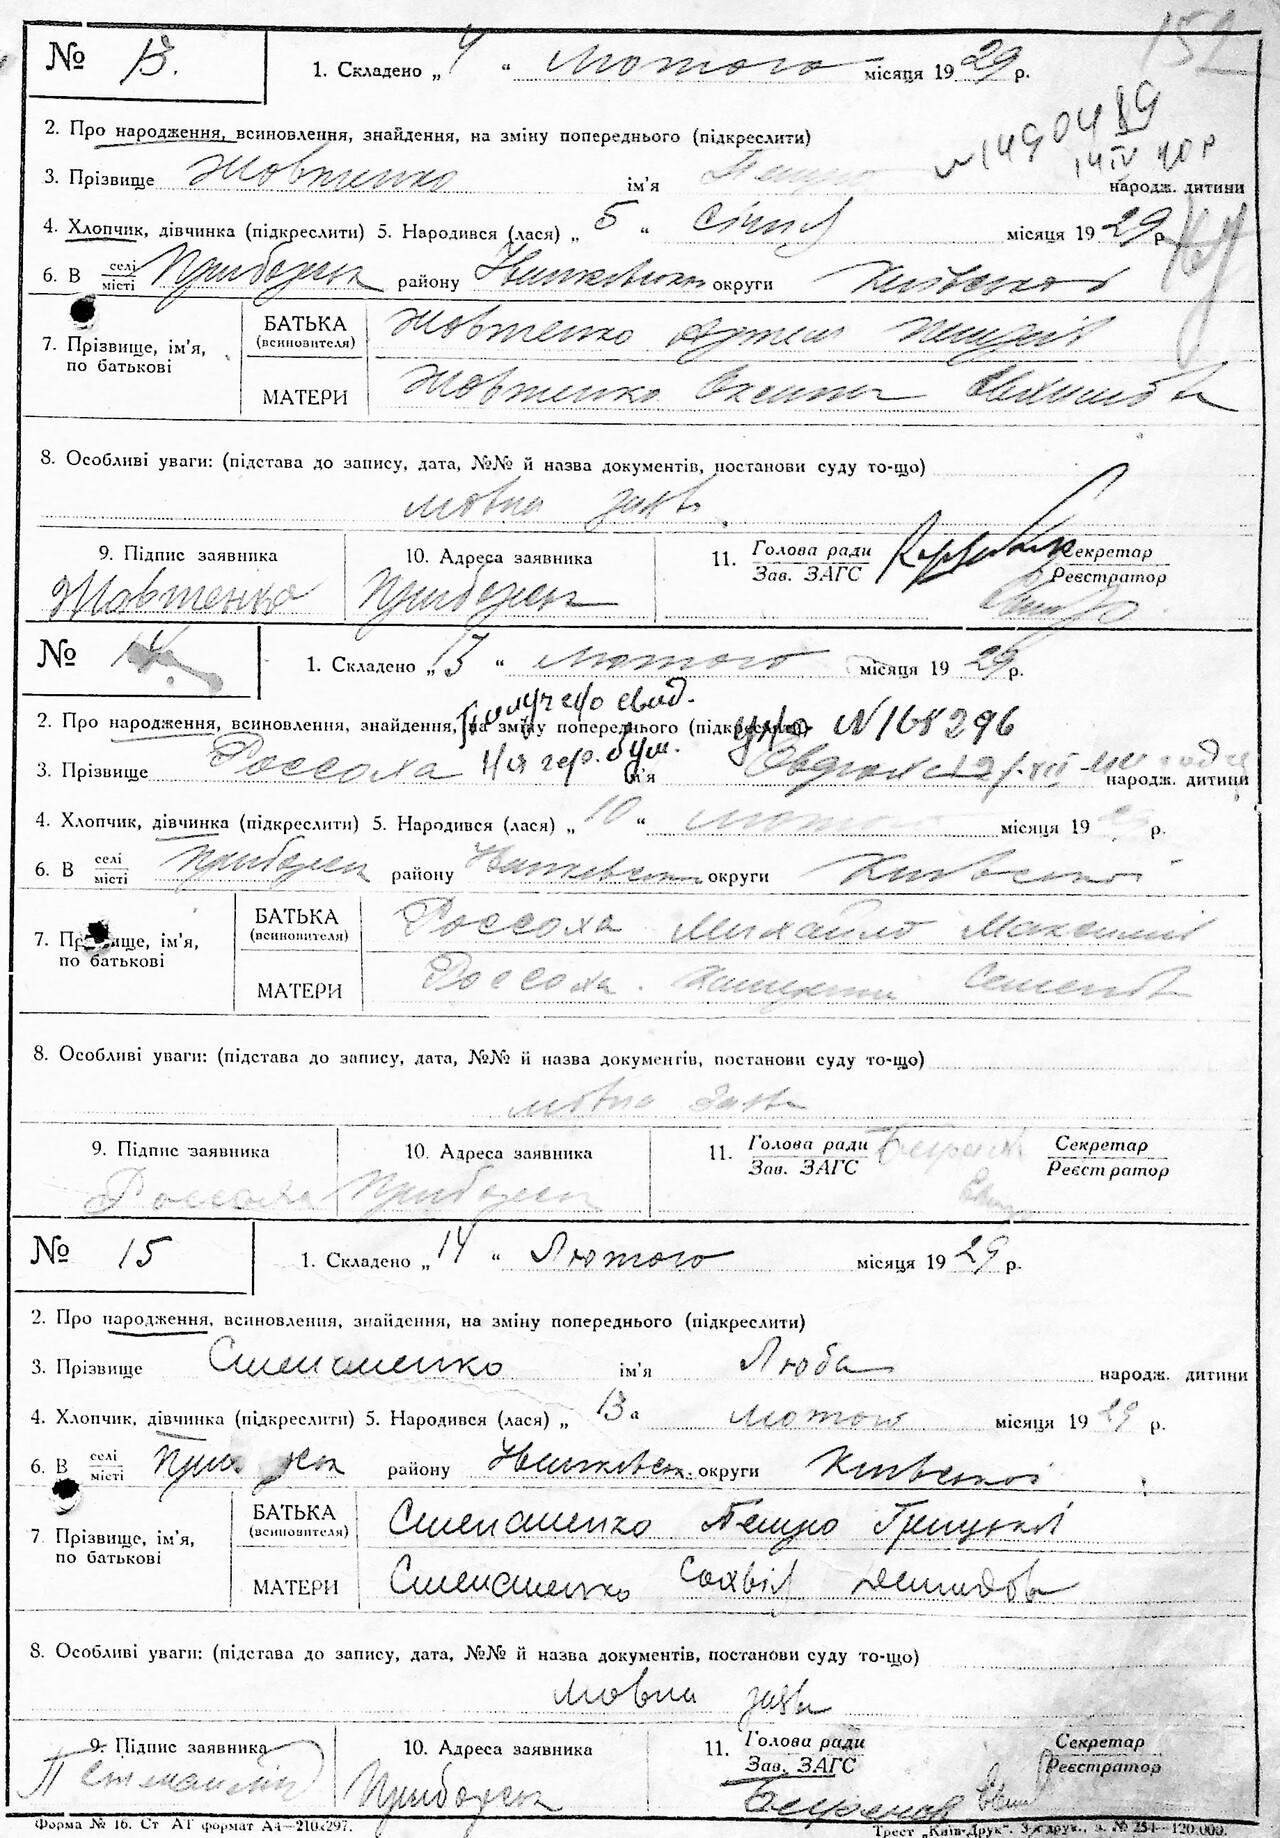 152
№ 13. 1. Складено „ 4 “ Лютого місяця 19 29 р.
2. Про народження, всиновлення, знайдення, на зміну попереднього (підкреслити)
№ 1490489
14 IV 40 р
3. Прізвище Жовтенко ім'я Петро народж. дитини
4. Хлопчик, дівчинка (підкреслити) 5. Народився (лася) „ 5 “ Січня місяця 19 29 р.
6. В селі/місті Приборськ району округи Київської
7. Прізвище, ім'я, по батькові
БАТЬКА (всиновителя) Жовтенко Артем
МАТЕРИ Жовтенко Оксана
8. Особливі уваги: (підстава до запису, дата, №№ й назва документів, постанови суду то-що)
мовна заява
9. Підпис заявника 10. Адреса заявника 11. Голова ради Секретар
Зав. ЗАГС Реєстратор
Жовтенко Приборськ
№ 14 1. Складено „ 13 “ лютого місяця 19 29 р.
Получено свид.
2. Про народження, всиновлення, знайдення, на зміну попереднього (підкреслити) № 168296
на гер. бум.
3. Прізвище Россоха ім'я народж. дитини
4. Хлопчик, дівчинка (підкреслити) 5. Народився (лася) „ 10 “ лютого місяця 19 29 р.
6. В селі/місті Приборськ району округи Київської
7. Прізвище, ім'я, по батькові
БАТЬКА (всиновителя) Россоха Михайло Максимів
МАТЕРИ Россоха Семенова
8. Особливі уваги: (підстава до запису, дата, №№ й назва документів, постанови суду то-що)
мовна заява
9. Підпис заявника 10. Адреса заявника 11. Голова ради Секретар
Зав. ЗАГС Реєстратор
Россоха Приборськ
№ 15 1. Складено „ 14 “ Лютого місяця 19 29 р.
2. Про народження, всиновлення, знайдення, на зміну попереднього (підкреслити)
3. Прізвище Степаненко ім'я Люба народж. дитини
4. Хлопчик, дівчинка (підкреслити) 5. Народився (лася) „ 13 “ лютого місяця 19 29 р.
6. В селі/місті Приборськ району округи Київської
7. Прізвище, ім'я, по батькові
БАТЬКА (всиновителя) Степаненко Петро Грицьків
МАТЕРИ Степаненко Сохвія Демидова
8. Особливі уваги: (підстава до запису, дата, №№ й назва документів, постанови суду то-що)
Мовна заява
9. Підпис заявника 10. Адреса заявника 11. Голова ради Секретар
Зав. ЗАГС Реєстратор
Приборськ
Форма № 16. Ст АГ формат А4—210х297. Трест „Київ-Друк“. 3-я друк., з. № 254—120.000.